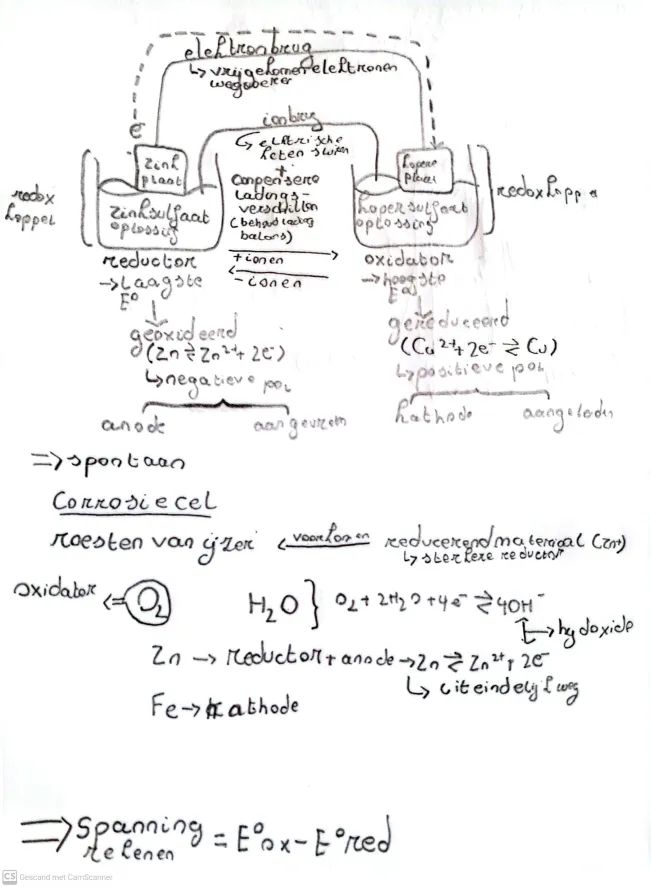 elektronbrug
↳ vrijgekomen elektronen
wegwerken
ionbrug
↳ elektrische
keten sluiten
+
compenseren
ladings-
verschillen
(behoud lading
balans)
e⁻
zink
plaat
kopere
plaat
redox
koppel
redoxkoppel
zinksulfaat
oplossing
kopersulfaat
oplossing
+ionen
-ionen
reductor
→ laagste
E°
oxidator
→ hoogste
E°
↓
geoxideerd
(Zn ⇄ Zn²⁺ + 2e⁻)
↳ negatieve pool
gereduceerd
(Cu²⁺ + 2e⁻ ⇄ Cu)
↳ positieve pool
anode
aangevreten
kathode
⇒ spontaan
Corrosiecel
roesten van ijzer ← voorkomen reducerend materiaal (Zn)
↳ sterkere reductor
oxidator ⇐ O₂ H₂O } O₂ + 2H₂O + 4e⁻ ⇄ 4OH⁻
↳ hydoxide
Zn → reductor + anode → Zn ⇄ Zn²⁺ + 2e⁻
↳ uiteindelijk weg
Fe → kathode
⇒ Spanning
rekenen = E°ox - E°red
CS Gescand met CamScanner